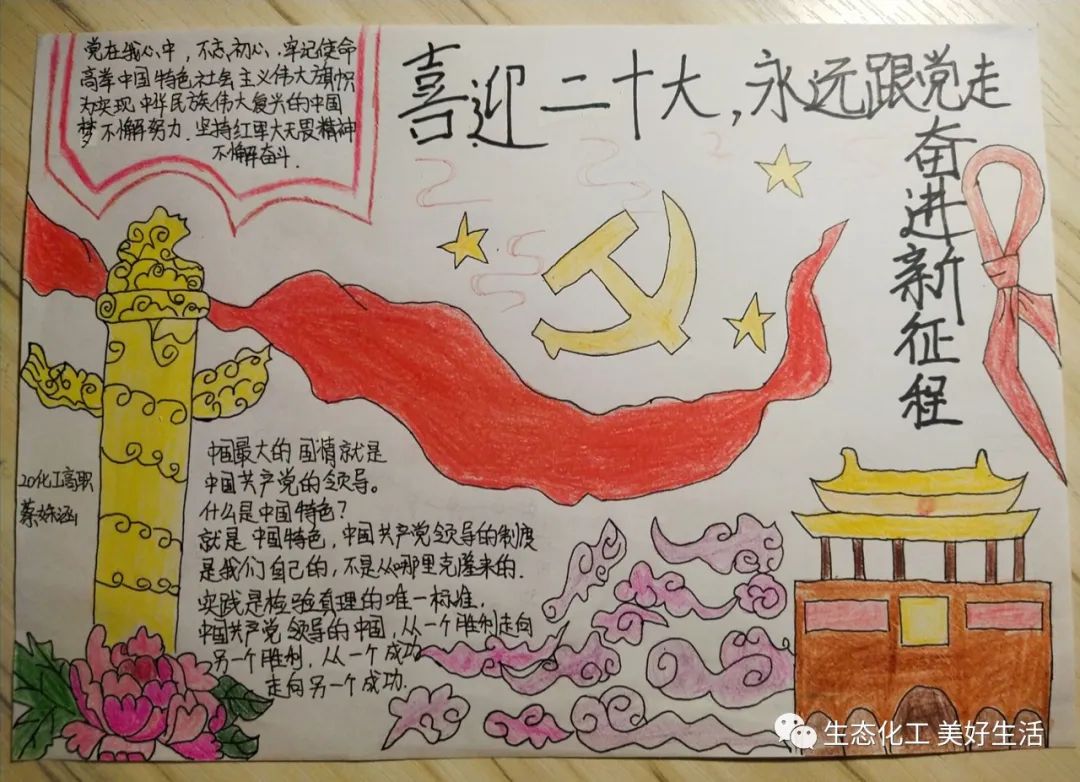 党在我心中，不忘初心、牢记使命
高举中国特色社会主义伟大旗帜
为实现中华民族伟大复兴的中国
梦不懈努力．坚持红军大无畏精神
不懈奋斗．
喜迎二十大，永远跟党走
奋进新征程
20化工高职
蔡姝涵
中国最大的国情就是
中国共产党的领导。
什么是中国特色？
就是中国特色，中国共产党领导的制度
是我们自己的，不是从哪里克隆来的．
实践是检验真理的唯一标准．
中国共产党领导的中国，从一个胜利走向
另一个胜利，从一个成功
走向另一个成功．
生态化工 美好生活